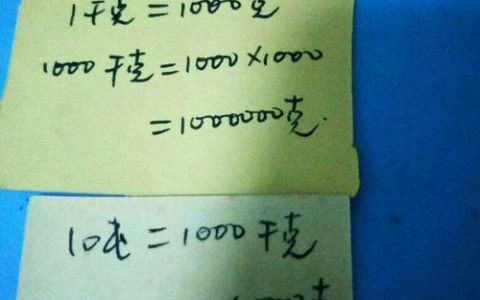 1千克=1000克
1000千克=1000×1000
=1000000克.
10吨=1000千克